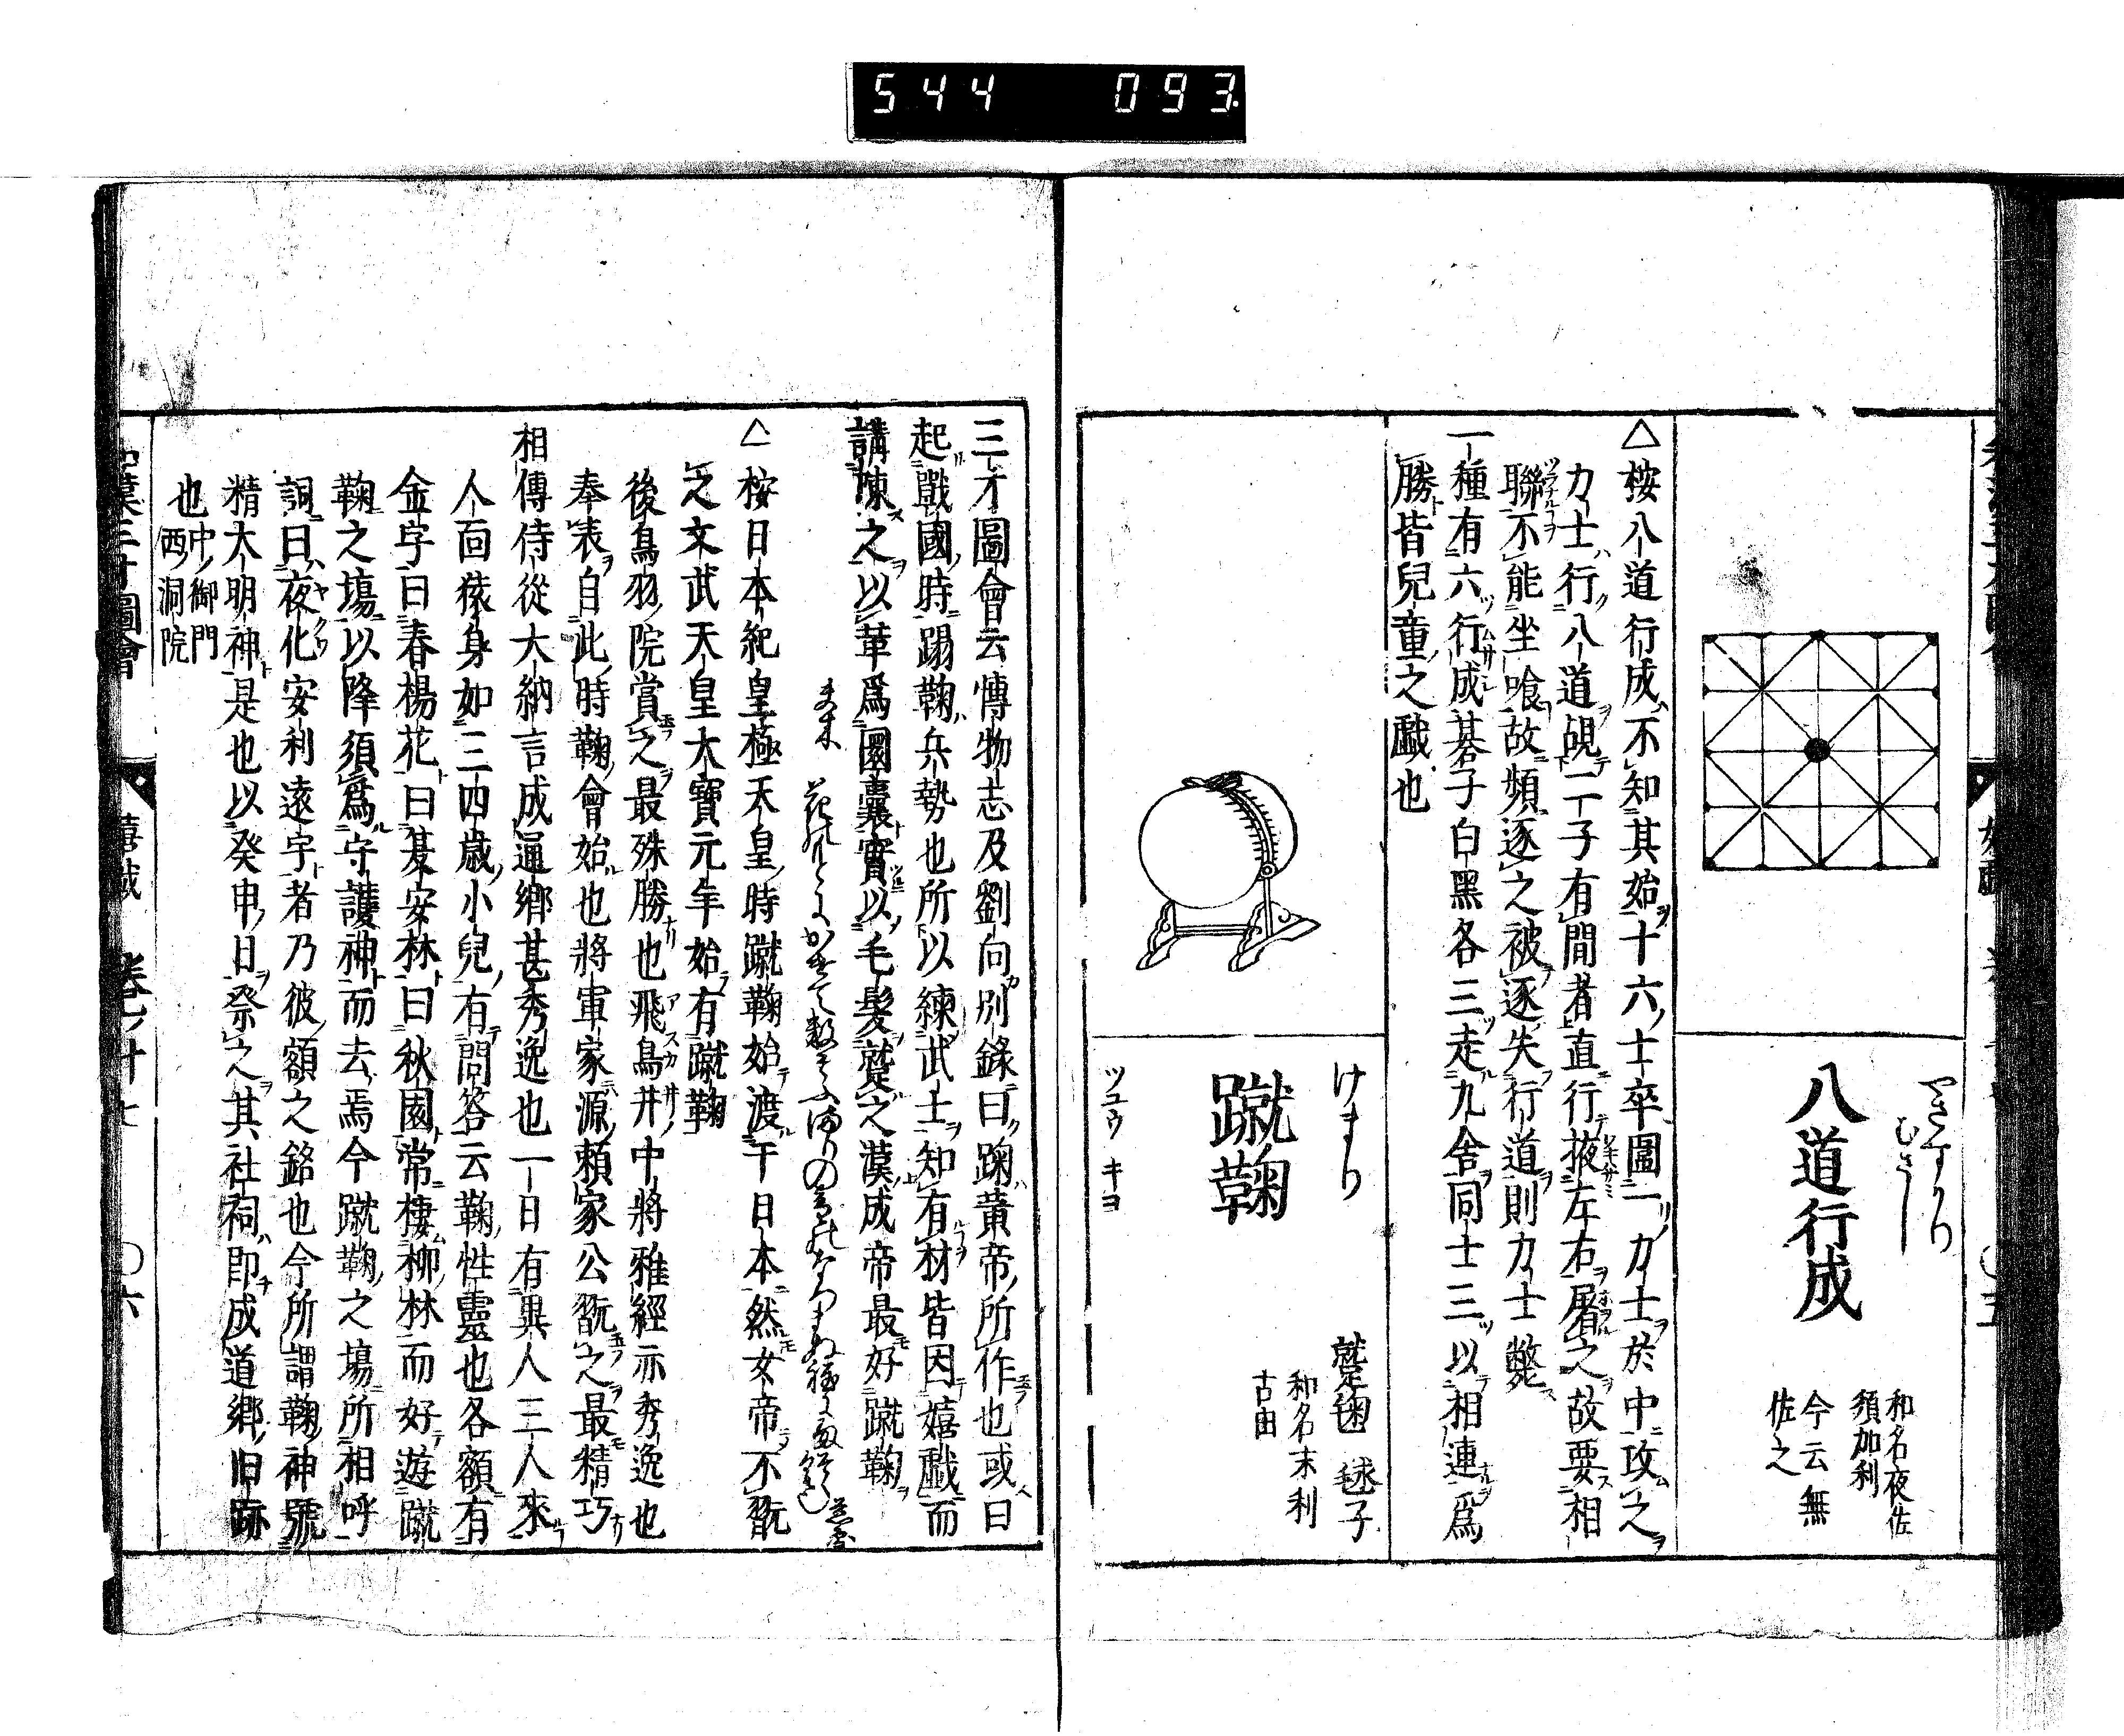 544 093.
八道行成
やさすかり
むさし
和名夜佐
須加利
今云無
佐之
△桉八道行成不知其始十六士卒圖一力士於中攻之
力士行八道覘二子有間者直行掖左右屠之故要相
聯不能坐喰故頻逐之被逐失行道則力士斃
一種有六行成碁子白黑各三走九舍同士三以相連爲
勝皆兒童之戯也
けまり
蹴鞠
ツユウ キヨ
蹵鞠 毬子
和名末利
古由
三才圖會云博物志及劉向別錄曰蹴鞠黄帝所作也或曰
起戰國時蹋鞠兵勢也所以練武士知有材皆因嬉戯而
講練之以革爲圜囊實以毛髮蹵之漢成帝最好蹴鞠
△桉日本紀皇極天皇時蹴鞠始渡于日本然女帝不翫
之文武天皇大寶元年始有蹴鞠
後鳥羽院賞之最殊勝也飛鳥井中將雅經亦秀逸也
奉表自此時鞠會始也將軍家源頼家公翫之最精巧
相傳侍從大納言成通鄉甚秀逸也一日有異人三人來
人面猿身如三四歲小兒有問答云鞠性靈也各額有
金字曰春楊花曰夏安林曰秋園常棲柳林而好遊蹴
鞠之塲以降須爲守護神而去焉今蹴鞠之塲所相呼
詞曰夜化安利遠宇者乃彼額之銘也今所謂鞠神號
精大明神是也以癸申日祭之其社祠即成道鄉旧跡
也中御門
西洞院